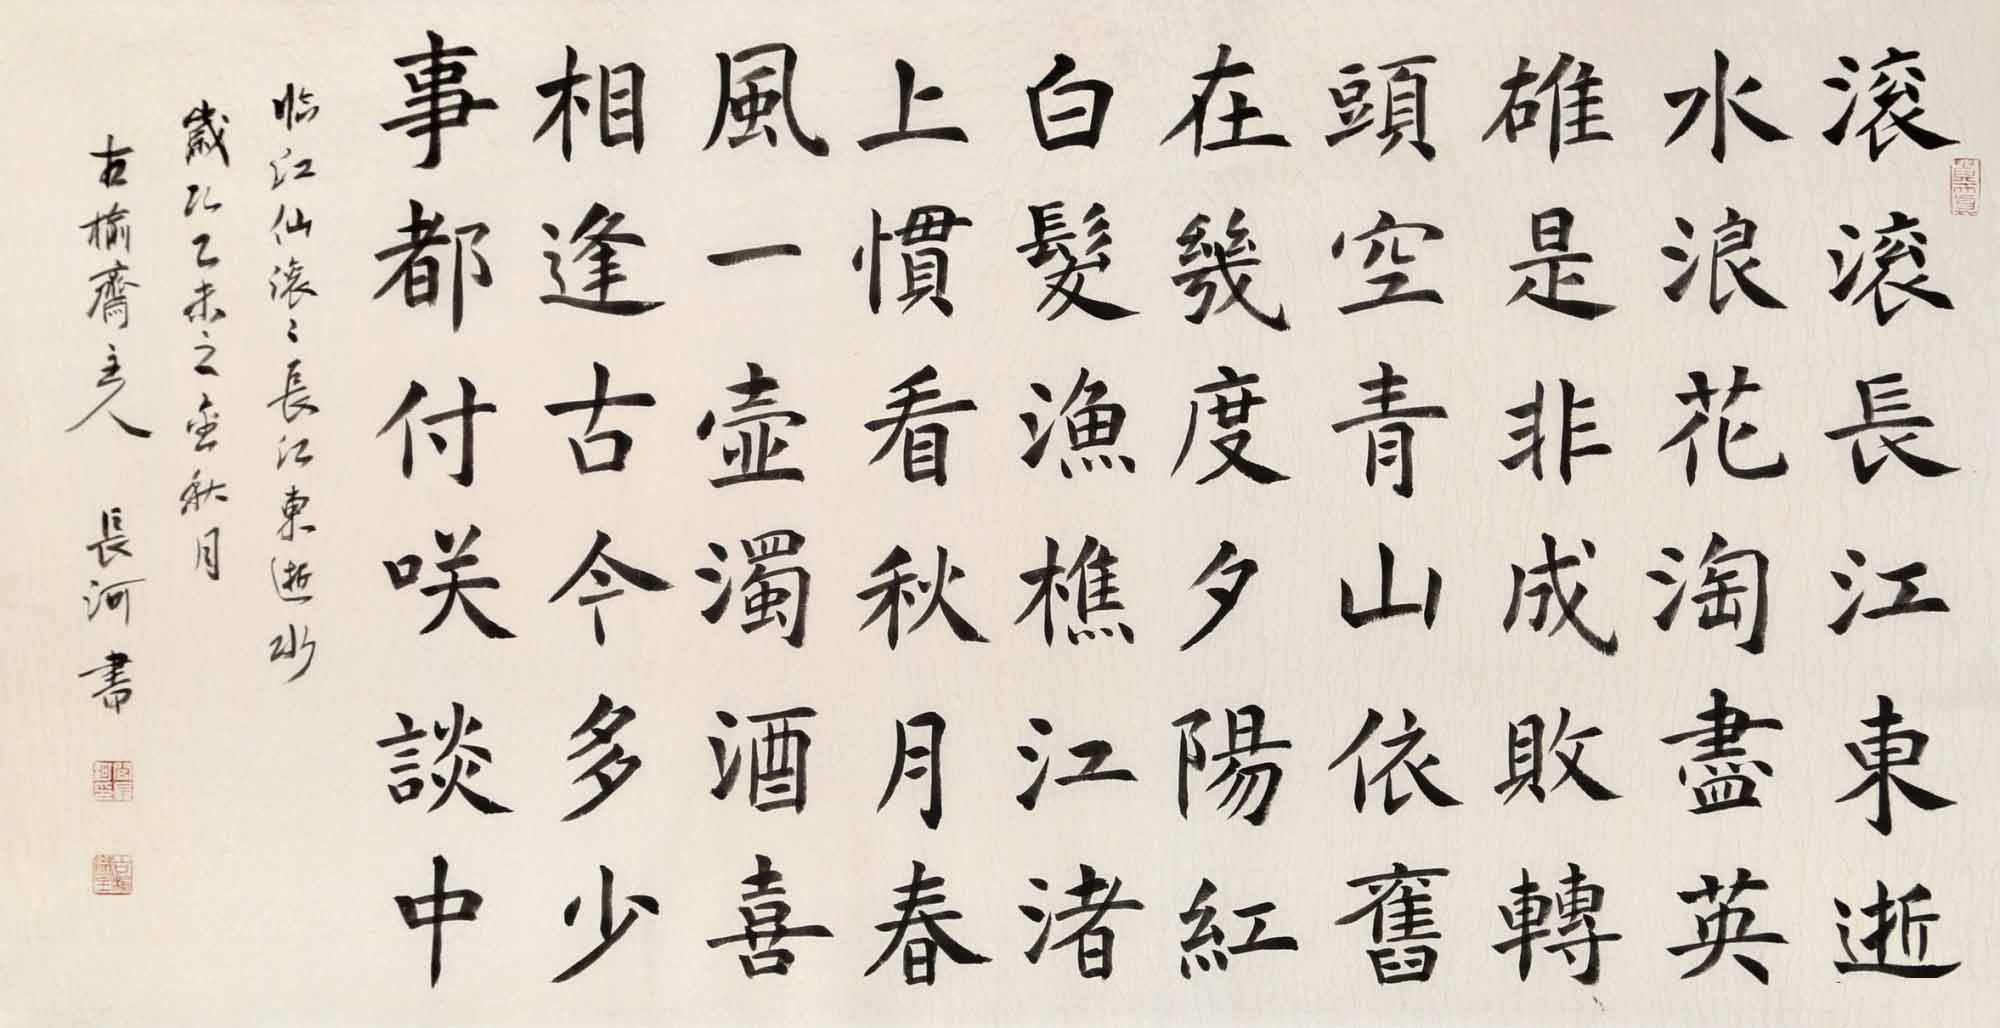 滚滚長江東逝
水浪花淘盡英
雄是非成敗轉
頭空青山依舊
在幾度夕陽紅
白髮漁樵江渚
上慣看秋月春
風一壺濁酒喜
相逢古今多少
事都付咲談中
臨江仙滚〻長江東逝水
歲次乙未之金秋月
古榆齋主人 長河書